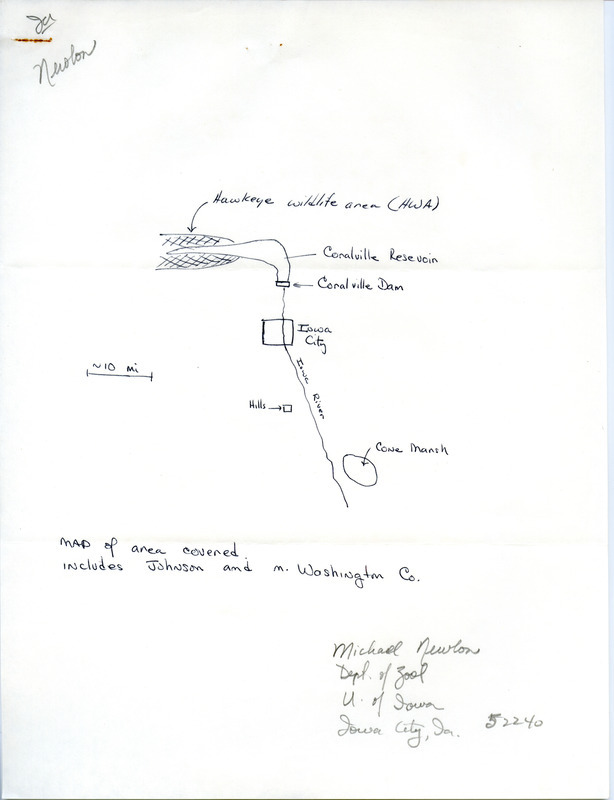 Ia
Newlon
Hawkeye wildlife area (HWA)
Coralville Resevoir
Coralville Dam
Iowa
City
~10 mi
Iowa River
Hills
Cone Marsh
MAP of area covered.
includes Johnson and n. Washington Co.
Michael Newlon
Dept. of Zool
U. of Iowa
Iowa City, Ia. 52240